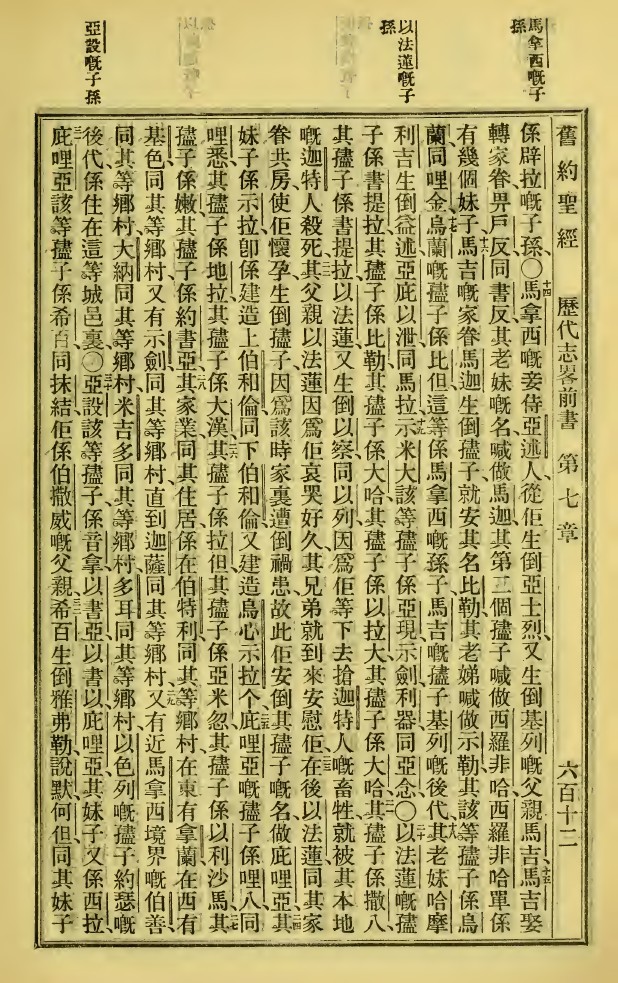 馬拿西嘅子孫
以法蓮嘅子孫
亞設嘅子孫
舊約聖經 歷代志畧前書 第七章 六百十二
係辟拉嘅子孫〇十四馬拿西嘅妾侍亞述人從佢生倒亞士烈又生倒基列嘅父親馬吉十五馬吉娶
轉家眷畀戶反同書反其老妹嘅名喊做馬迦其第二個孻子喊做西羅非哈西羅非哈單係
有幾個妹子十六馬吉嘅家眷馬迦生倒孻子就安其名比勒其老娣喊做示勒其該等孻子係烏
蘭同哩金十七烏蘭嘅孻子係比但這等係馬拿西嘅孫子馬吉嘅孻子基列嘅後代十八其老妹哈摩
利吉生倒益述亞庇以泄同馬拉十九示米大該等孻子係亞現示劍利器同亞念〇二十以法蓮嘅孻
子係書提拉其孻子係比勒其孻子係大哈其孻子係以拉大其孻子係大哈其孻子係撒八
其孻子係書提拉以法蓮又生倒以察同以列因爲佢等下去搶迦特人嘅畜牲就被其本地
嘅迦特人殺死其父親以法蓮因爲佢哀哭好久其兄弟就到來安慰佢在後以法蓮同其家
眷共房使佢懷孕生倒孻子因爲該時家裏遭倒禍患故此佢安倒其孻子嘅名做庇哩亞其
妹子係示拉卽係建造上伯和倫同下伯和倫又建造烏心示拉个庇哩亞嘅孻子係哩八同
哩悉其孻子係地拉其孻子係大漢其孻子係拉但其孻子係亞米忽其孻子係以利沙馬其
孻子係嫩其孻子係約書亞其家業同其住居係在伯特利同其等鄉村在東有拿蘭在西有
基色同其等鄉村又有示劍同其等鄉村直到迦薩同其等鄉村二九又有近馬拿西境界嘅伯善
同其等鄉村大納同其等鄉村米吉多同其等鄉村多耳同其等鄉村以色列嘅孻子約瑟嘅
後代係住在這等城邑裏〇三十亞設該等孻子係音拿以書亞以書以庇哩亞其妹子又係西拉
庇哩亞該等孻子係希百同抹結佢係伯撒威嘅父親希百生倒雅弗勒說默何但同其妹子